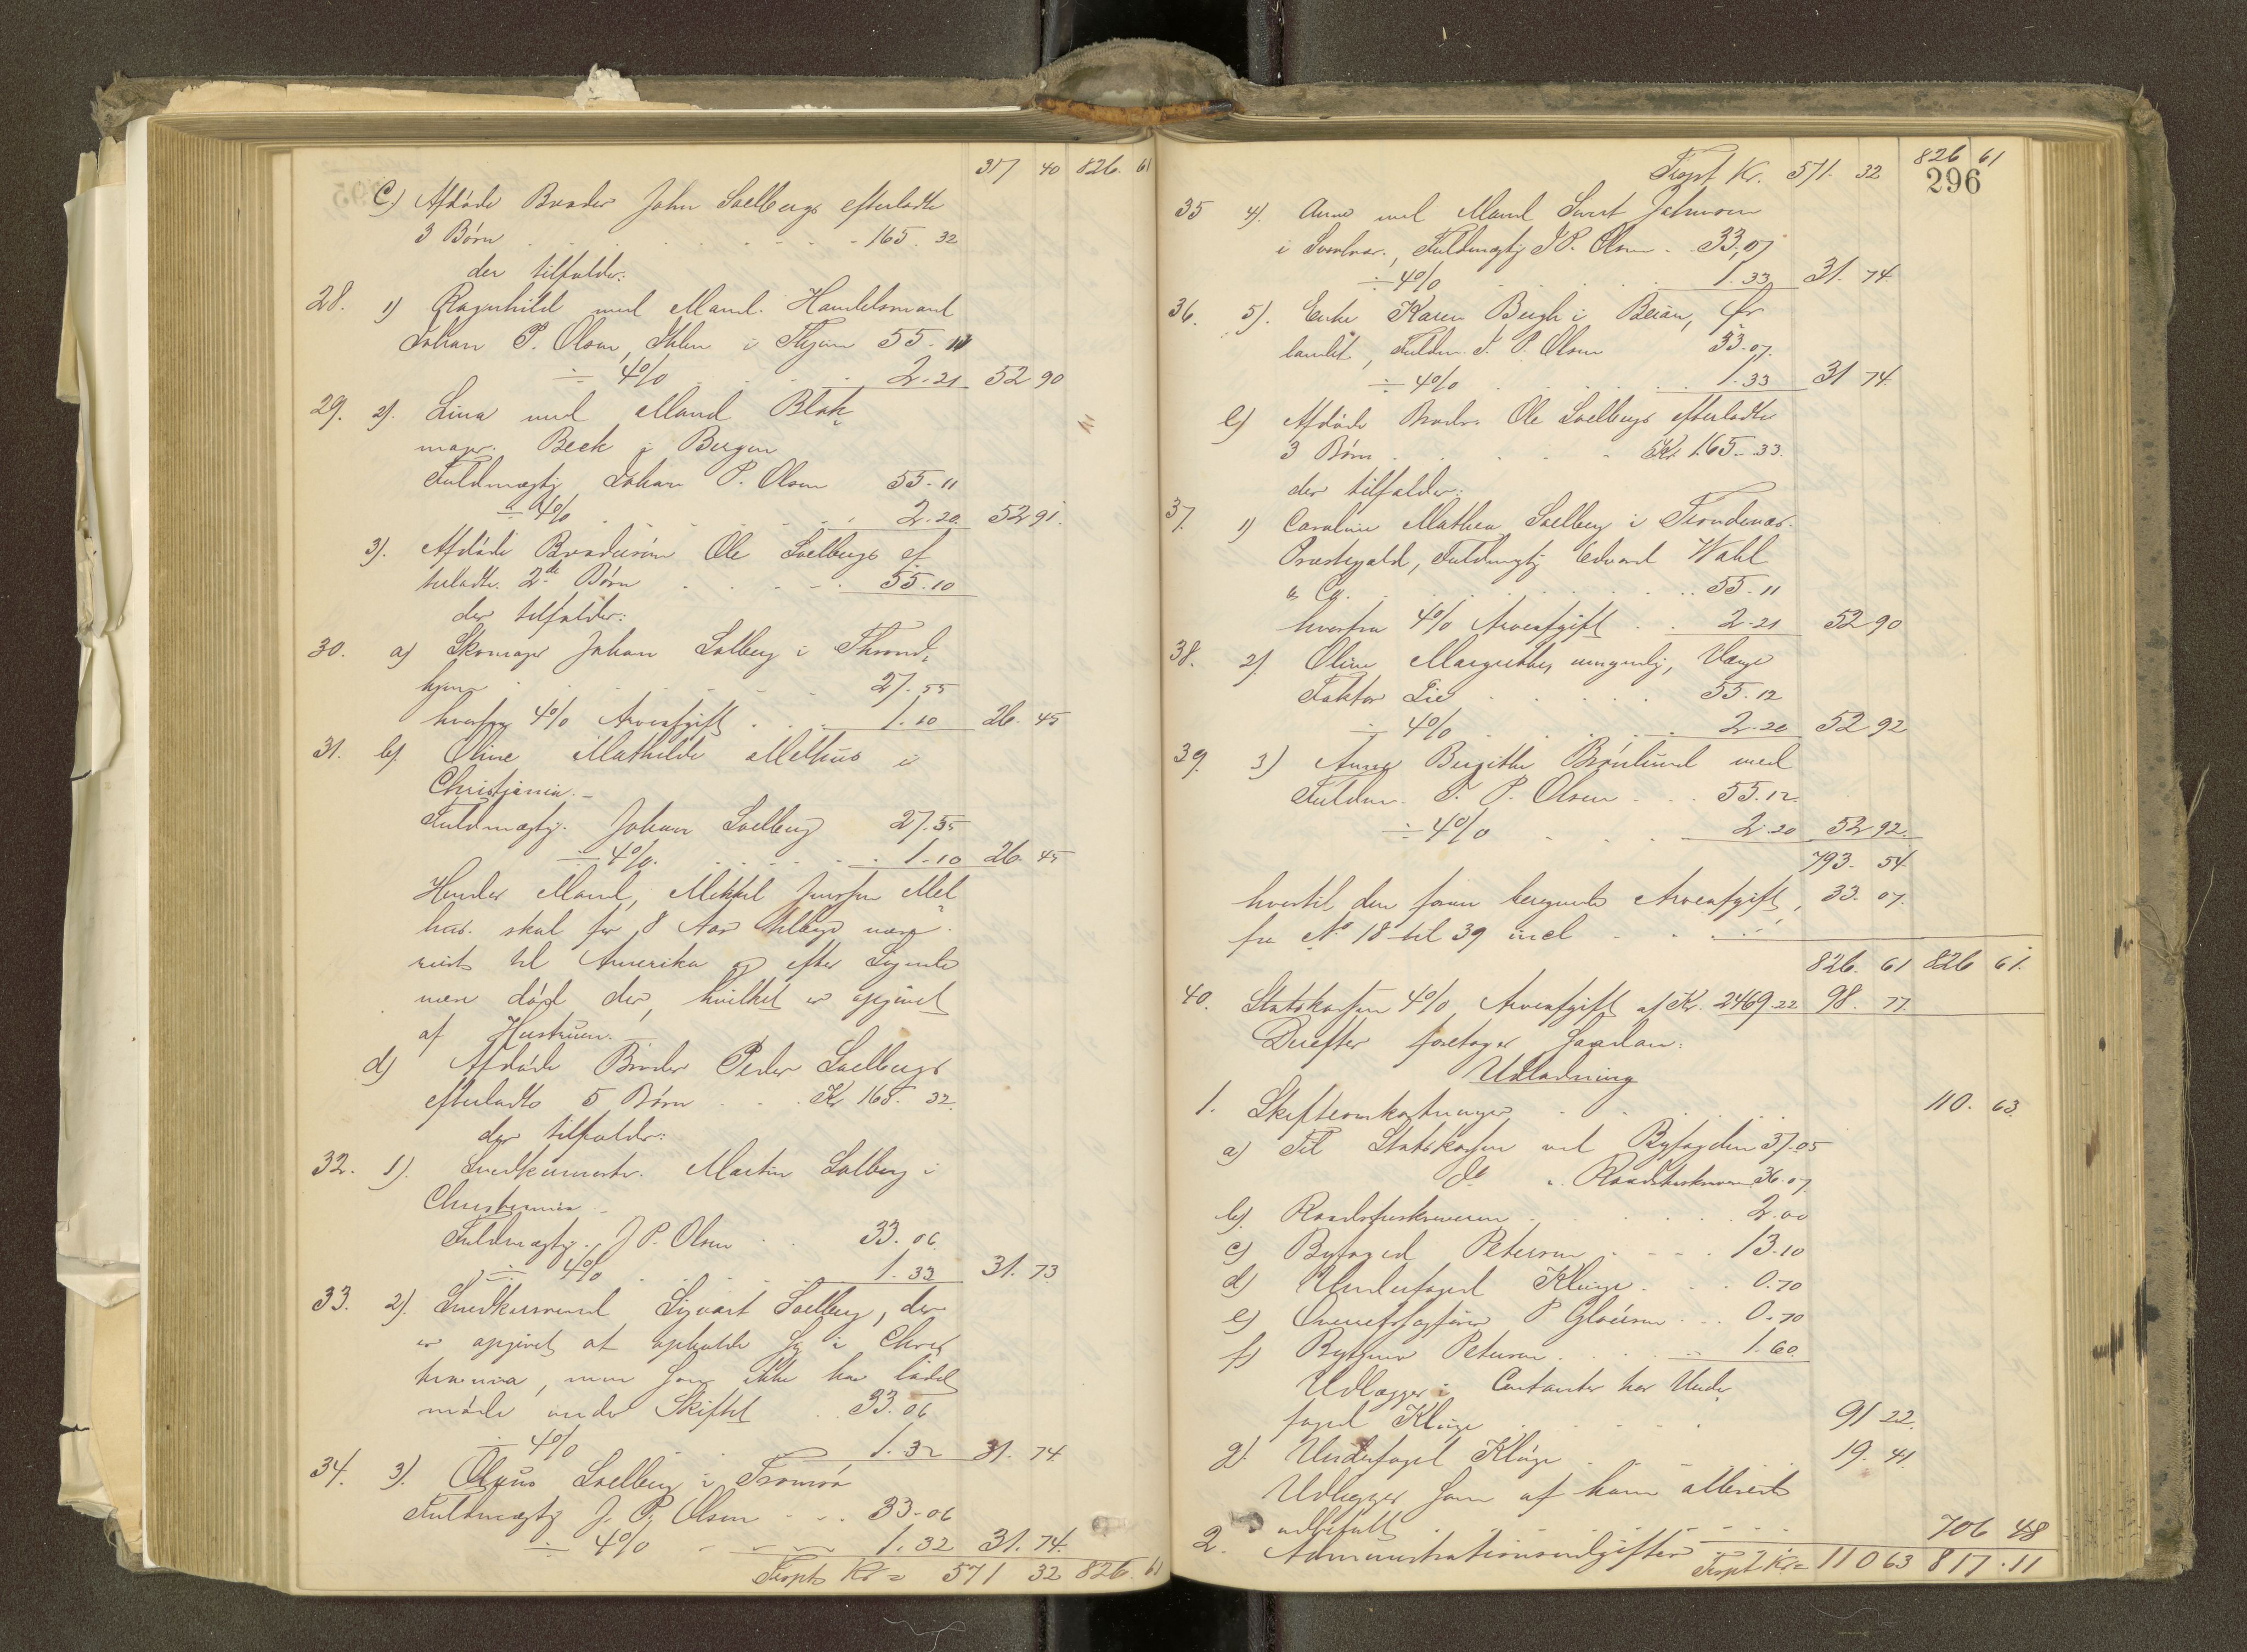 317 40 826. 61
C) Afdöde Broder John Soelbergs efterladte
3 Börn 165. 32
der tilfalder:
28. 1) Ragnhild med Mand. Handelsmand
Johan P. Olsen, i 55. 11
÷ 4% 2.21 52 90
29. 2). Lina med Mand Blok
mager. Beck i Bergen
Fuldmægtig Johan P. Olsen 55.11
÷ 4% 2.20 52 91.
3). Afdöde Brodersön Ole Soelbergs ef
terladte 2de Börn 55.10
der tilfalder:
30. a) Skomager Johan Solberg i Thrond,
hjem 27.55
hvorfra 4% Arveafgift 1.10 26. 45
31. b). Oline Mathilde Melhus i
Christjania.-
Fuldmægtig. Johan Soelberg 27.55
÷ 4%. 1.10 26. 45
Hendes Mand, Mikkel Mel
hus. skal for 8 Aar tilbage være
reist til Amerika og efter Sigende
være död der, hvilket er opgivet
af Hustruen.-
d) Afdöde Broder Peder Soelbergs
efterladte 5 Börn Kr 165. 32.
der tilfalder:
32. 1). Snedkermester. Martin Solberg i
Christiania.-
Fuldmægtig. J P. Olsen 33.06
÷ 4% 1.33 31. 73
33. 2). Snedkersvend Sigvart Soelberg, der
er opgivet at opholde sig i Chris
tiania, men som ikke har ladet
möde under Skiftet 33.06
÷ 4% 1.32 31. 74
34. 3). Soelberg i Tromsö
Fuldmægtig J. P. Olsen 33.06
÷ 4% 1.32 31. 74.
Trspt Kr = 571 32 826. 61
Trspt Kr. 571. 32 826 61
296
35 4). Anne med Mand Sivert Johnsen
i Svolvær., Fuldmægtig J P. Olsen 33,07
÷ 4% 1.33 31. 74
36. 5). Enke Karen Bergh i Beian, Ör
landet, Fuldm. J. P. Olsen 33.07.
÷ 4% 1.33 31 74.
e) Afdöde Broder Ole Soelbergs efterladte
3 Börn Kr 165.33.
der tilfalder:
37. 1) Caroline Mathea Soelberg i Trondenæs
Præstegjeld, Fuldmægtig Edvard Wahl
& Co. 55.11
hvorfra 4% Arveafgift 2.21 52 90
38. 2). Oline Margrethe, umyndig, Værge
Faktor Lie 55.12
÷ 4% 2.20 52 92
39. 3) Anna Birgitte Brönlund med
Fuldm. J. P. Olsen 55.12.
÷ 4% 2.20 52 92.
793. 54
hvortil den foran beregnede Arveafgift, 33. 07.
fra No 18 til 39 incl
826. 61 826 61.
40. Statskassen 4% Arveafgift af Kr. 2469.22 98. 77.
Derefter foretoges saadan:
Udlodning
1. Skifteomkostninger 110. 63.
a) Til Statskassen ved Byfogden 37.05
do " Raadstueskriveren 36.07
b). Raadstueskriveren 2.00
c) Byfoged Petersen 13.10
d) Underfoged Klüge 0.70
e) Overretssagförer P 0.70
f) Petersen 1.60.
Udlægges i Contanter hos Under,
foged Klüge 91 22.
g). Underfoged Klüge 19. 41.
Udlægges som af ham allerede
udbetalt
2. Administrationsudgifter 706 48
Trspt Kr = 110 63 817.11